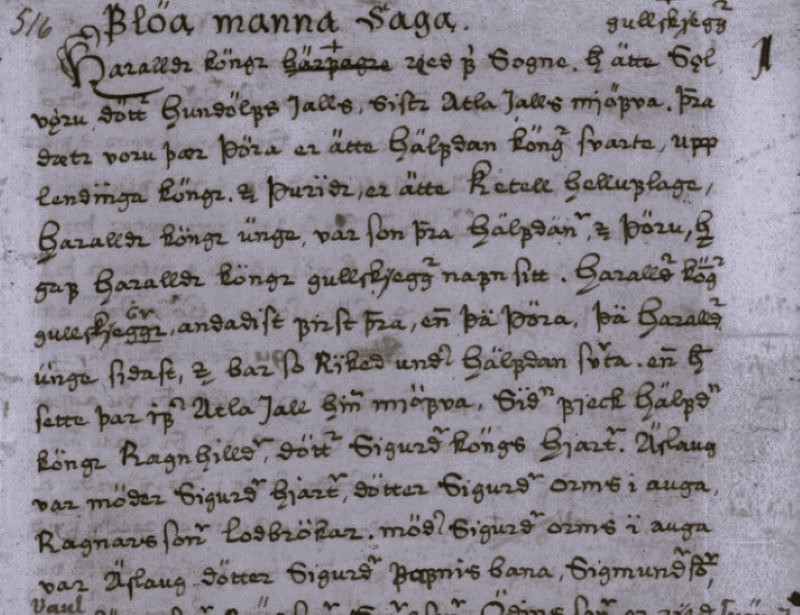 516 Flöa manna Saga. gullskjegg
1
Haralldr köngr härfagre ried f Sogne. h ätte Sol
voru dött Hundölfs Jalls, sistr Atla Jalls miöfva. Þra
dætr voru þær Þöra er ätte Hälfdan köng svarte, upp
lendinga köngr. & Þuridr, er ätte Ketell helluflage,
Haralldr köngr ünge, var son þra Hälfdanr, & Þöru, h
gaf Haralldr köngr gullskjeggr nafn sitt. Haralldr köngr
gullskjeggr, andadist first þra, en þä Þöra, þä Haralldr
ünge sidast, & bar so Riked undr Hälfdan svta. en h
sette þar ifr Atla Jall hin miöfva, Sidn fieck Hälfdn
köngr Ragnhilldr, döttr Sigurdr köngs hjartr. Äslaug
var möder Sigurdr hjartr, dötter Sigurdr orms i auga,
Ragnars sonr Lodbrökar. mödr Sigurdr orms i auga
var Äslaug dötter Sigurdr Fofnis bana, Sigmundr